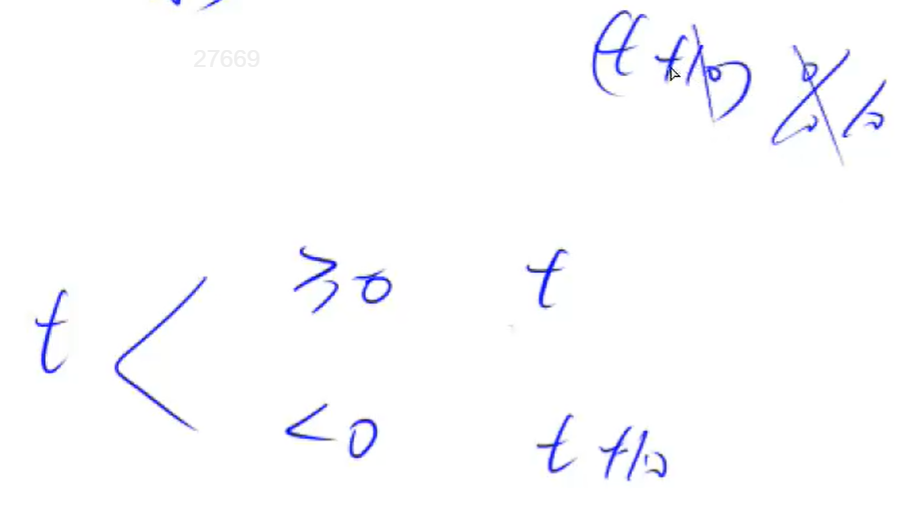 27669
(t +10) % 10
≥0 t
t
<0 t +10